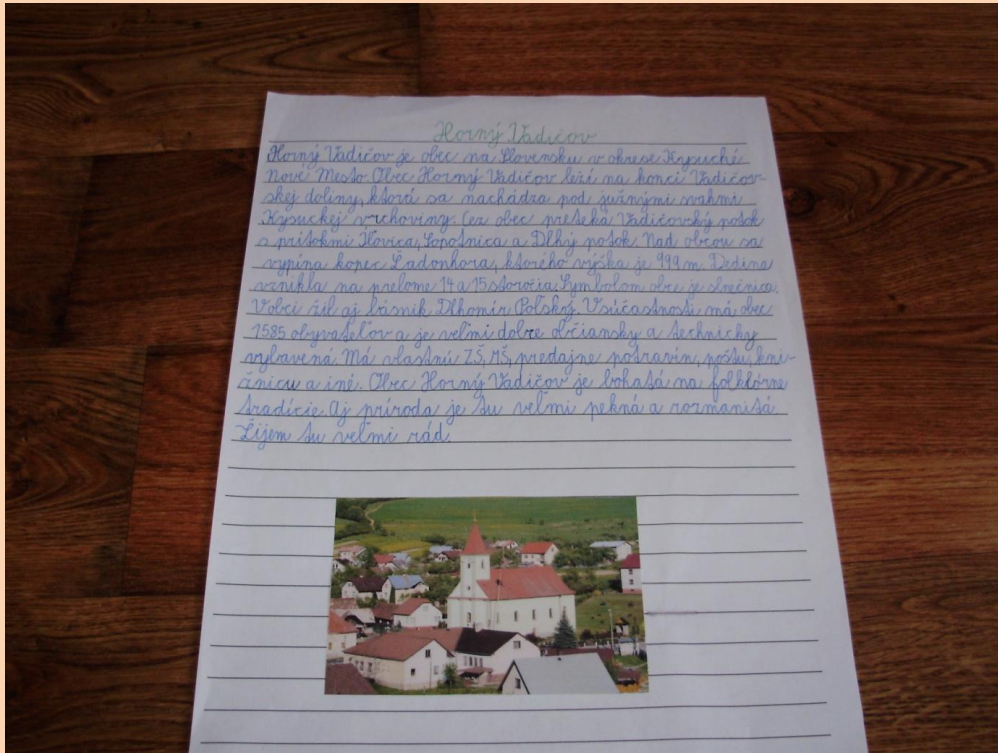 Horný Vadičov
Horný Vadičov je obec na Slovensku v okrese Kysucké
Nové Mesto. Obec Horný Vadičov leží na konci Vadičov-
skej doliny, ktorá sa nachádza pod južnými svahmi
Kysuckej vrchoviny. Cez obec preteká Vadičovský potok
s prítokmi Ilovica, Lopotnica a Dlhý potok. Nad obcou sa
vypína kopec Ľadonhora, ktorého výška je 999 m. Dedina
vznikla na prelome 14 a 15 storočia. Symbolom obce je slnečnica.
V obci žil aj básnik Dlhomír Poľský. V súčastnosti má obec
1585 obyvateľov a je veľmi dobre občiansky a technicky
vybavená. Má vlastnú ZŠ, MŠ, predajne potravín, poštu, kni-
žnicu a iné. Obec Horný Vadičov je bohatá na folklórne
tradície. Aj príroda je tu veľmi pekná a rozmanitá.
Žijem tu veľmi rád.